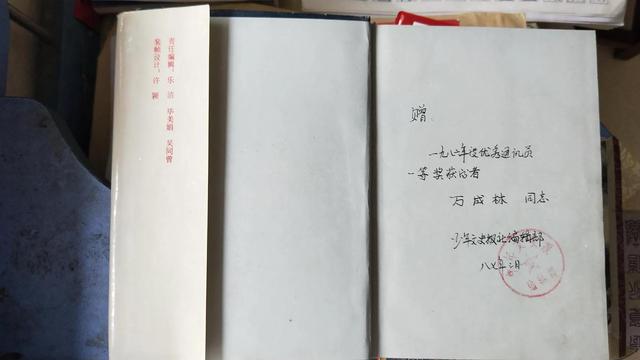 责任编辑：乐洁 毕美娟 吴同曾
装帧设计：许颖
赠：
一九八六年度优秀通讯员
一等奖获得者
万成林 同志
少年文史报社编辑部
八七年三月